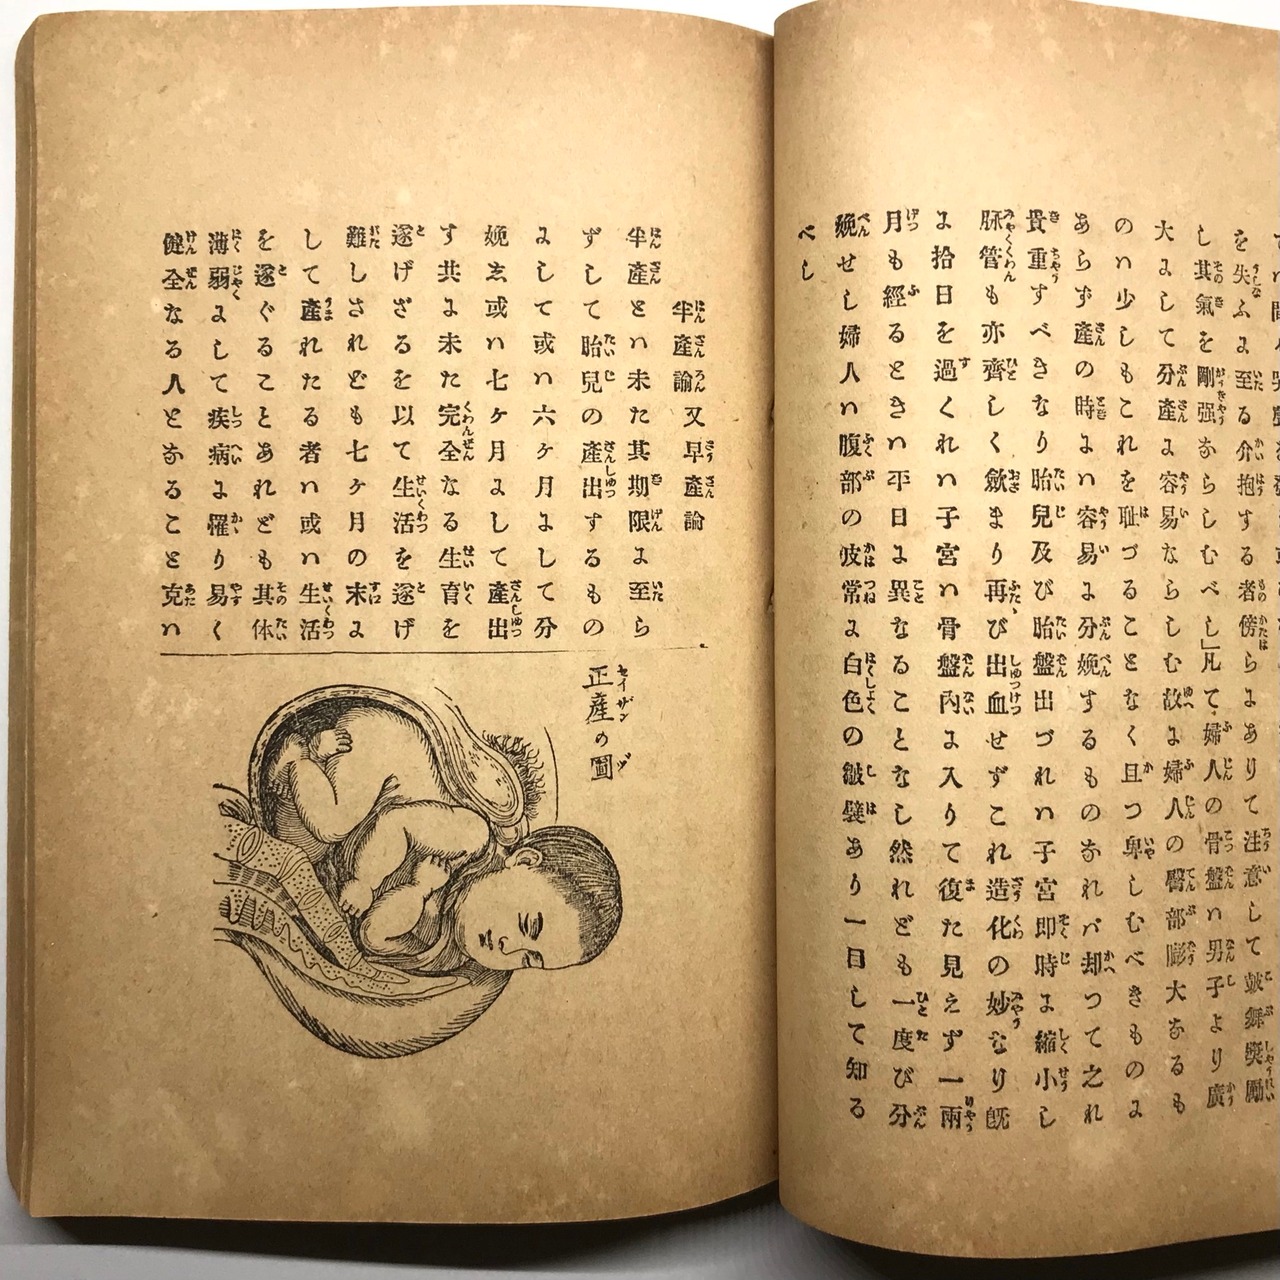 を失ふよ至る介抱する者傍らよありて注意して皷舞奬勵
し其氣を剛强ならしむべし」凡て婦人の骨盤ハ男子より廣
大よして分產よ容易ならしむ故よ婦人の臀部膨大なるも
のハ少しもこれを耻づることなく且つ卑しむべきものよ
あらず產の時よハ容易よ分娩するものなれバ却つて之れ
貴重すべきなり胎兒及び胎盤出づれハ子宮即時よ縮小し
脉管も亦齊しく歛まり再び出血せずこれ造化の妙なり旣
よ拾日を過くれハ子宮ハ骨盤內よ入りて復た見えず一兩
月も經るときハ平日よ異なることなし然れども一度び分
娩せし婦人ハ腹部の皮常よ白色の皺襞あり一目して知る
べし
半產論又早產論
半產とハ未た其期限よ至ら
ずして胎兒の產出するもの
よして或ハ六ヶ月よして分
娩し或ハ七ヶ月よして產出
す共よ未た完全なる生育を
遂げざるを以て生活を遂げ
難しされども七ヶ月の末よ
して產れたる者ハ或ハ生活
を遂ぐることあれども其体
薄弱よして疾病よ罹り易く
健全なる人となること克ハ
正產の圖